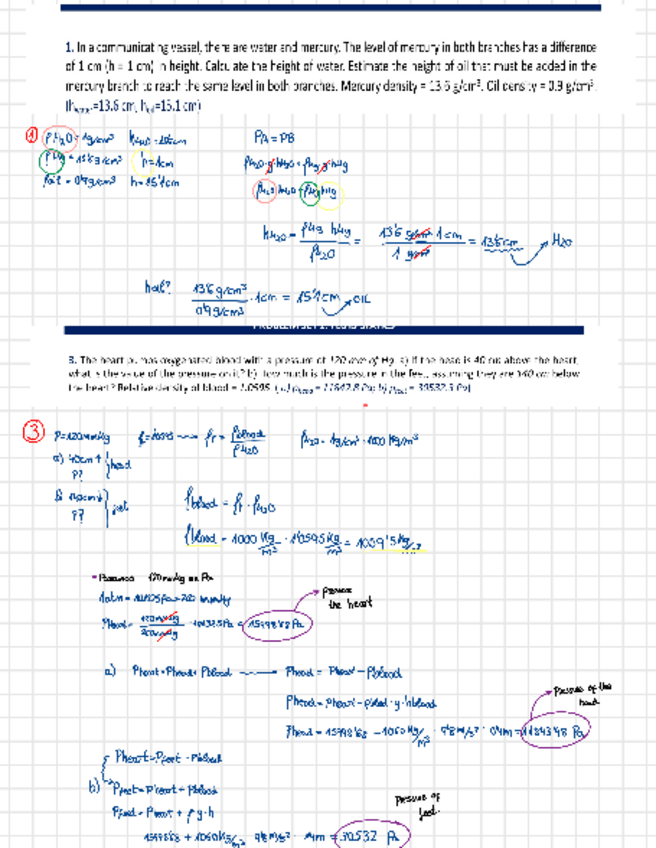 1. In a communicating vessel, there are water and mercury. The level of mercury in both branches has a difference
of 1 cm (h = 1 cm) in height. Calculate the height of water. Estimate the height of oil that must be added in the
mercury branch to reach the same level in both branches. Mercury density = 13.6 g/cm³. Oil density = 0.9 g/cm³.
(h =13.6 cm, h =15.1 cm)
① ρH₂O = 1g/cm³
ρHg = 13'6 g/cm³ h=1cm
ρoil = 0'9 g/cm³ h=15'1cm
PA = PB
ρH₂O · g · hH₂O = ρHg · g · hHg
ρH₂O hH₂O = ρHg hHg
hH₂O = ρHg hHg / ρH₂O = 13'6 g/cm³ · 1cm / 1 g/cm³ = 13'6cm → H₂O
hoil? 13'6 g/cm³ / 0'9 g/cm³ · 1cm = 15'1cm → OIL
PROBLEM SET 1: FLUID STATICS
3. The heart pumps oxygenated blood with a pressure of 120 mm of Hg. a) If the head is 40 cm above the heart,
what is the value of the pressure on it? b) How much is the pressure in the feet, assuming they are 140 cm below
the heart? Relative density of blood = 1.0595.
③ P=120mmHg ρr = ρblood / ρH₂O ρH₂O = 1g/cm³ = 1000 Kg/m³
a) 40cm ↑ head
P?
P? feet
ρblood = ρr · ρH₂O
ρblood = 1000 Kg/m³ · 1'0595 Kg/m³ = 1059'5 Kg/m³
120 mmHg en Pa
1atm = 101325 Pa = 760 mmHg
Pheart = 120mmHg / 760mmHg · 101325 Pa = 15998'68 Pa → pressure
the heart
a) Pheart = Phead + Pblood → Phead = Pheart - Pblood
Phead = Pheart - ρblood · g · hblood
Phead = 15998'68 - 1060 Kg/m³ · 9'8 m/s² · 0'4m = 11843'48 Pa → Pressure of the
head
Pheart = Pfeet - Pblood
b) Pfeet = Pheart + Pblood
Pfeet = Pheart + ρ g · h
15998'68 + 1060 Kg/m³ · 9'8 m/s² · 1'4m = 30532 Pa
pressure of
feet